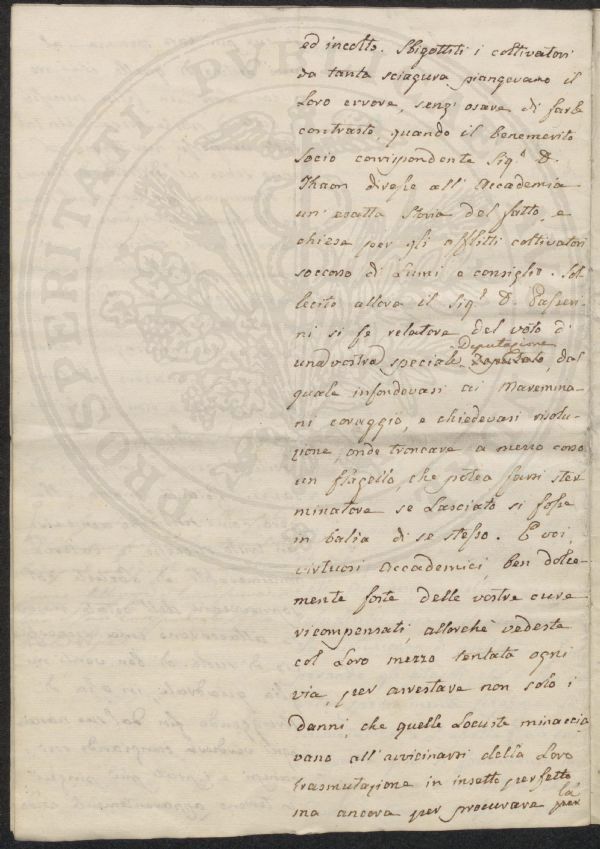 ed incolto. Sbigottiti i coltivatori
da tanta sciagura piangevano il
loro errore, senz' osare di farle
contrasto, quando il benemerito
socio corrispondente Sig.r D.
Thaon diresse all' Accademia
un' esatta storia del fatto, e
chiese per gli afflitti coltivatori
soccorso di Lumi e consiglio. Sol
lecito allora il Sig.r D. Passeri-
ni si fe relatore del voto di
una vostra speciale Deputazione, dal
quale infondevasi ai Maremma-
ni coraggio, e chiedevasi risolu-
zione, onde troncare a mezzo corso
un flagello, che potea farsi ster
minatore se lasciato si fosse
in balìa di se stesso. E voi,
virtuosi Accademici, ben dolce-
mente foste delle vostre cure
ricompensati, allorchè vedeste
col loro mezzo tentata ogni
via, per arrestare non solo i
danni, che quelle Locuste minaccia
vano all' avvicinarsi della loro
trasmutazione in insetto perfetto
ma ancora per procurare la
PROSPERITATI PVBLICAE